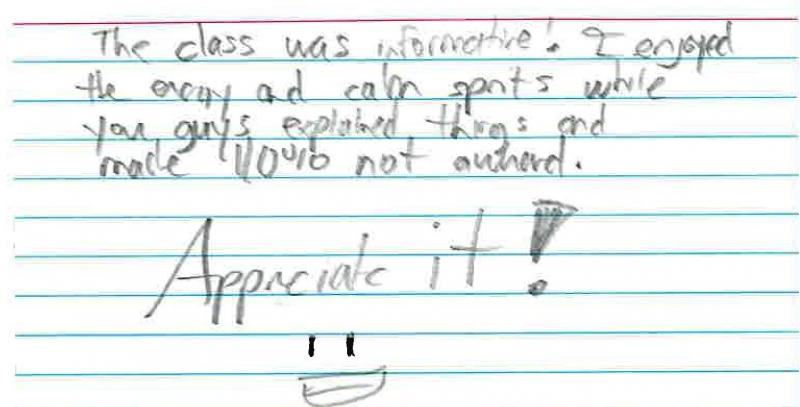 The class was informative! I enjoyed
the energy and calm spirits while
you guys explained things and
made not awkward.
Appreciate it!